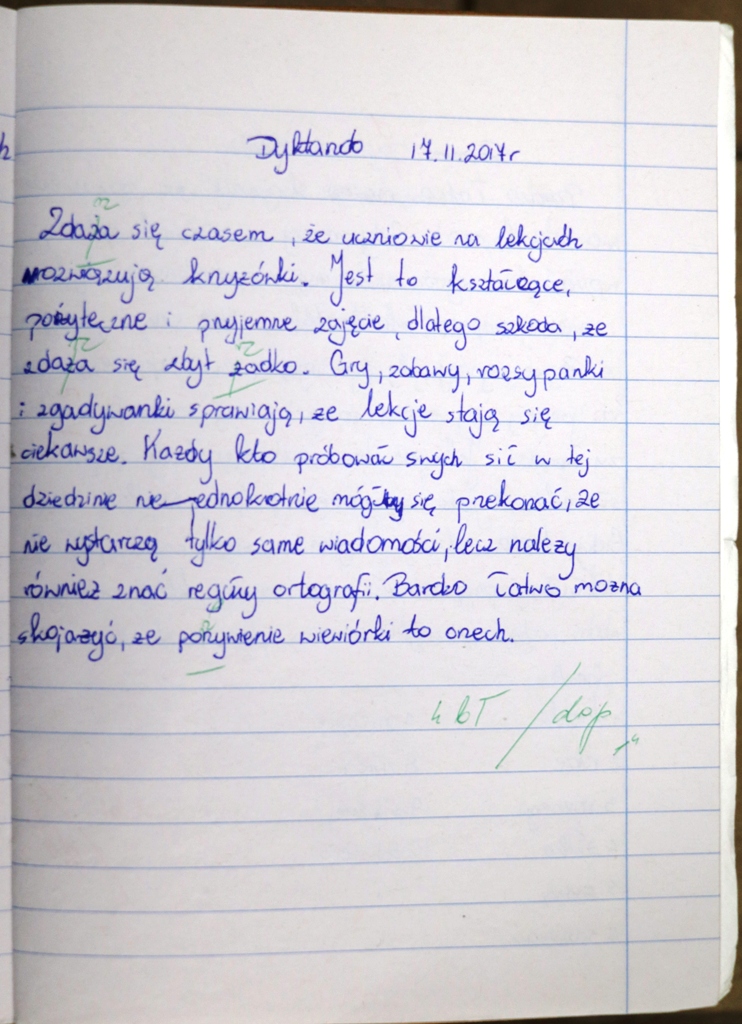 Dyktando 17.11.2017r
rz
Zdaża się czasem, że uczniowie na lekcjach
rozwiązują krzyżówki. Jest to kształcące,
pożyteczne i przyjemne zajęcie, dlatego szkoda, że
rz rz
zdaża się zbyt żadko. Gry, zabawy, rozsypanki
i zgadywanki sprawiają, że lekcje stają się
ciekawsze. Każdy kto próbował swych sił w tej
dziedzinie niejednokrotnie mógłby się przekonać, że
nie wystarczą tylko same wiadomości, lecz należy
również znać reguły ortografii. Bardzo łatwo można
skojażyć, że porzywienie wiewiórki to orzech.
4 bł. / dop